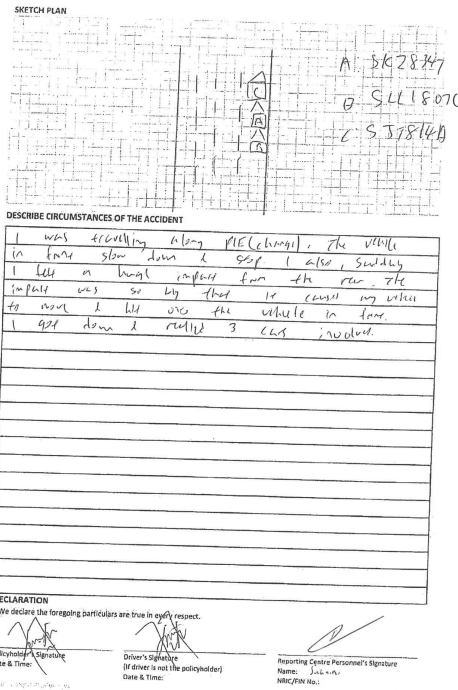 SKETCH PLAN
A SKZ8347
B SLL1807C
C SJT814D
C
A
B
DESCRIBE CIRCUMSTANCES OF THE ACCIDENT
I was travelling along PIE (changi), The vehicle
in front slow down & stop I also, Suddenly
I felt a huge impact from the rear. The
impact was so big that it caused my vehicle
to move & hit onto the vehicle in front.
I got down & realize 3 cars involved.
ECLARATION
We declare the foregoing particulars are true in every respect.
licyholder's Signature
te & Time:
Driver's Signature
(If driver is not the policyholder)
Date & Time:
Reporting Centre Personnel's Signature
Name:
NRIC/FIN No.: